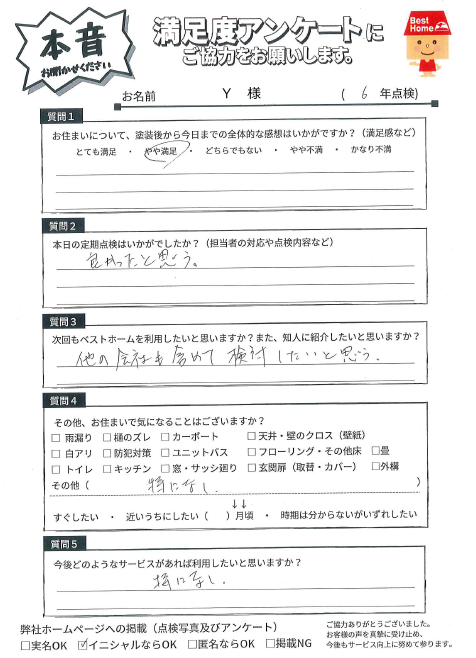 本音
お聞かせください
満足度アンケートに
ご協力をお願いします。
Best
Home
お名前 Y 様 ( 6 年点検)
質問1
お住まいについて、塗装後から今日までの全体的な感想はいかがですか？（満足感など）
とても満足 ・ やや満足 ・ どちらでもない ・ やや不満 ・ かなり不満
質問2
本日の定期点検はいかがでしたか？（担当者の対応や点検内容など）
良かったと思う。
質問3
次回もベストホームを利用したいと思いますか？また、知人に紹介したいと思いますか？
他の会社も含めて検討したいと思う。
質問4
その他、お住まいで気になることはございますか？
□ 雨漏り □ 樋のズレ □ カーポート □ 天井・壁のクロス（壁紙）
□ 白アリ □ 防犯対策 □ ユニットバス □ フローリング・その他床 □畳
□ トイレ □ キッチン □ 窓・サッシ廻り □ 玄関扉（取替・カバー） □外構
その他（ 特になし。 ）
↓↓
すぐしたい ・ 近いうちにしたい（ ）月頃 ・ 時期は分からないがいずれしたい
質問5
今後どのようなサービスがあれば利用したいと思いますか？
特になし。
弊社ホームページへの掲載（点検写真及びアンケート）
□実名OK ☑イニシャルならOK □匿名ならOK □掲載NG
ご協力ありがとうございました。
お客様の声を真摯に受け止め、
今後もサービス向上に努めて参ります。